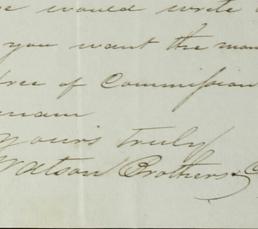 would write
you want the
free of Commission
yours truly
Watson Brothers & C